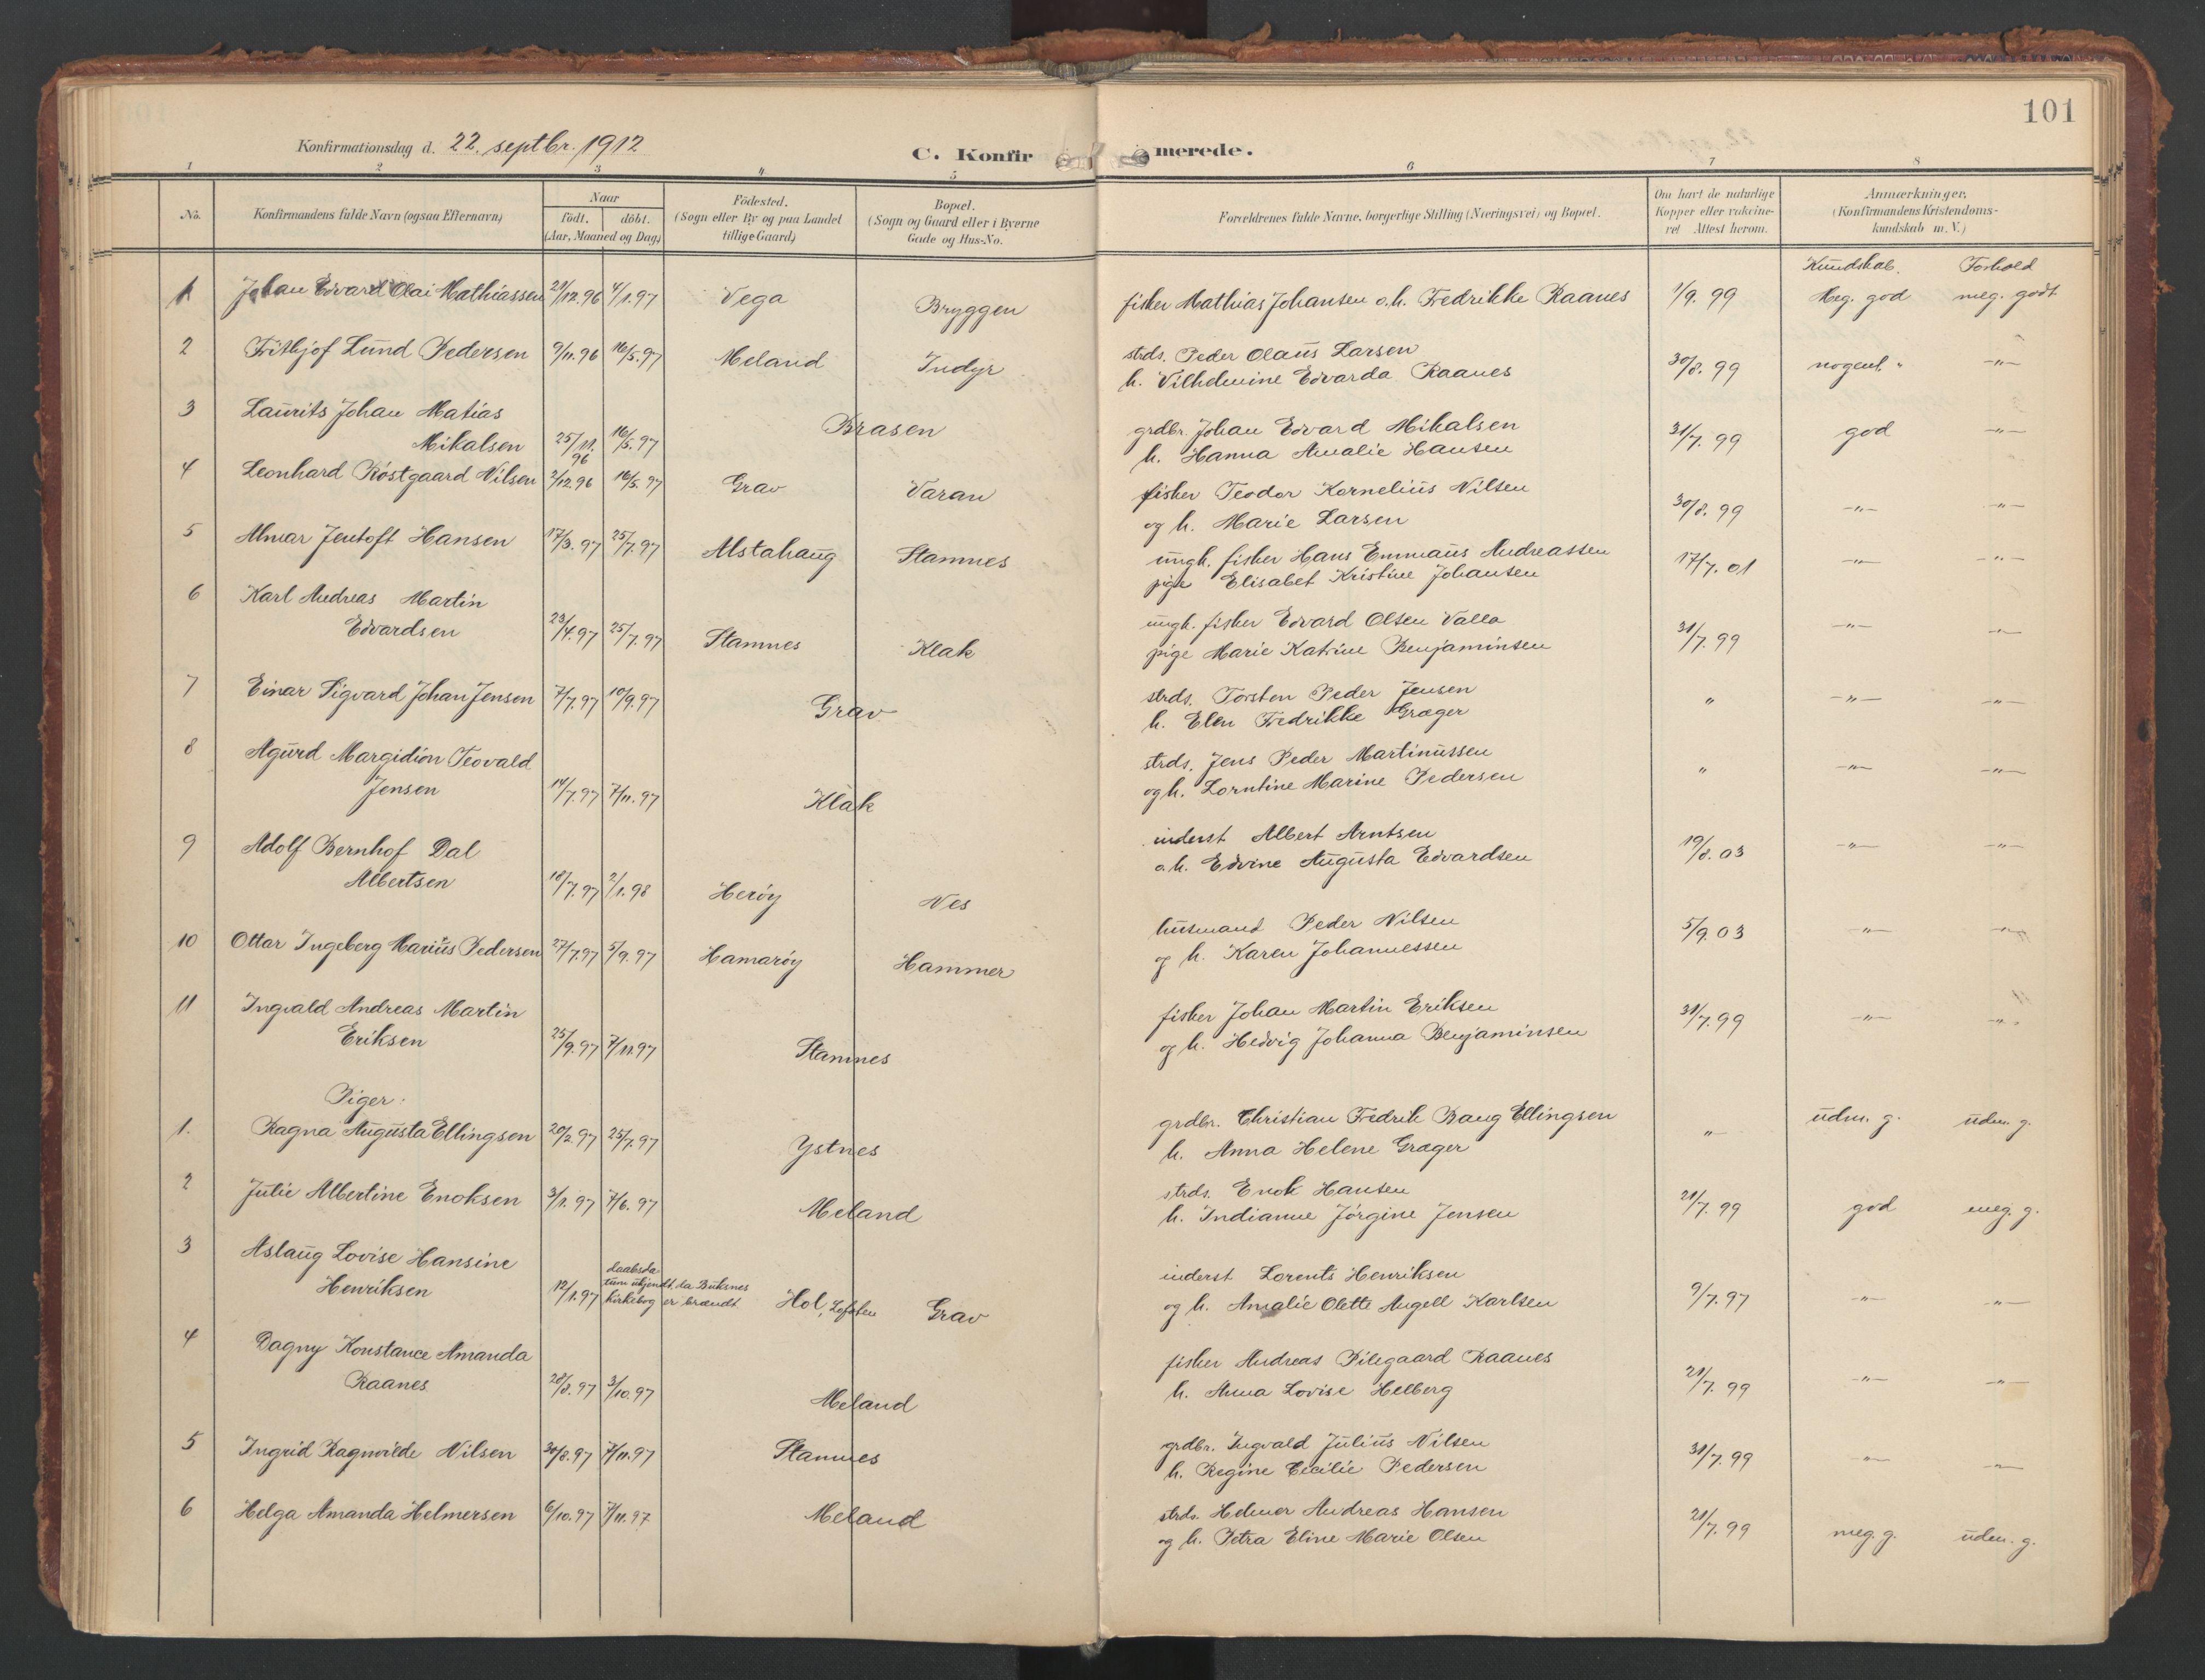 101
Konfirmationsdag d. 22. septbr. 1912
C. Konfirmerede.
1 2 3 4 5 6 7 8
No.
Konfirmandens fulde Navn (ogsaa Efternavn)
Naar
födt. döbt.
(Aar, Maaned og Dag)
Födested.
(Sogn eller By og paa Landet
tillige Gaard)
Bopæl.
(Sogn og Gaard eller i Byerne
Gade og Hus-No.
Forældrenes fulde Navne, borgerlige Stilling (Næringsvei) og Bopæl.
Om havt de naturlige
Kopper eller vakcine-
ret Attest herom.
Anmærkninger,
(Konfirmandens Kristendoms-
kundskab m. V.)
Kundskab. Forhold
1 Johan Edvard Olai Mathiassen 29/12.96 4/1.97 Vega Bryggen fisker Mathias Johansen o.h. Fredrikke Raanes 1/9. 99 Meg. god meg. godt
2 Frithjof Lund Pedersen 9/11.96 16/5.97 Meland Indyr strds. Peder Olaus Larsen
h. Vilhelmine Edvarda Raanes 30/8. 99 nogenl. " -"-
3 Laurits Johan Matias
Mikalsen 25/11. 96 16/5.97 Brasen grdbr. Johan Edvard Mikalsen
h. Hanna Amalie Hansen 31/7. 99 god -"-
4 Leonhard Röstgaard Nilsen 2/12.96 16/5.97 Grav Varan fisker Teodor Kornelius Nilsen
og h. Marie Larsen 30/8. 99 -"- -"-
5 Almar Jentoft Hansen 17/3.97 25/7.97 Alstahaug Stamnes ungk. fisker Hans Emmaus Andreassen
pige Elisabet Kristine Johansen 17/7.01 -"- -"-
6 Karl Andreas Martin
Edvardsen 23/4.97 25/7.97 Stamnes Klak ungk. fisker Edvard Olsen Valla
pige Marie Katrine Benjaminsen 31/7. 99 -"- -"-
7 Einar Sigvard Johan Jensen 7/7.97 10/9.97 Grav strds. Torsten Peder Jensen
h. Elen Fredrikke Græger " -"- -"-
8 Agurd Margidion Teovald
Jensen 14/7.97 7/11.97 Klak strds. Jens Peder Martinussen
og h. Lorntine Marine Pedersen " -"- -"-
9 Adolf Bernhof Dal
Albertsen 18/7.97 2/1.98 Heröy Nes inderst Albert Arntsen
o.h. Edvine Augusta Edvardsen 19/8.03 -"- -"-
10 Ottar Ingeberg Marius Pedersen 27/7.97 5/9.97 Hamaröy Hammer husmand Peder Nilsen
og h. Karen Johannessen 5/9.03 -"- -"-
11 Ingvald Andreas Martin
Eriksen 25/9.97 7/11.97 Stamnes fisker Johan Martin Eriksen
og h. Hedvig Johanna Benjaminsen 31/7.99 -"- -"-
Piger.
1. Ragna Augusta Ellingsen 20/2.97 25/7.97 Ystnes grdbr. Christian Fredrik Baug Ellingsen
h. Anna Helene Græger " udm. g. udm. g.
2 Julie Albertine Enoksen 3/1.97 7/6.97 Meland strds. Enok Hansen
h. Indianne Jörgine Jensen 21/7.99 god meg. g.
3 Aslaug Lovise Hansine
Henriksen 12/1.97 daabsda
tum ukjendt, da Buksnes
kirkebog er brændt Hol, Lofoten Grav inderst Lorents Henriksen
og h. Amalie Olette Angell Karlsen 9/7.97 -"- -"-
4 Dagny Konstance Amanda
Raanes 28/8.97 3/10.97 Meland fisker Andreas Pilegaard Raanes
h. Anna Lovise Helberg 21/7.99 -"- -"-
5 Ingrid Ragnvilde Nilsen 30/8.97 7/11.97 Stamnes grdbr. Ingvald Julius Nilsen
h. Regine Cecilie Pedersen 31/7.99 -"- -"-
6 Helga Amanda Helmersen 6/10.97 7/11.97 Meland strds. Helmer Andreas Hansen
og h. Petra Eline Marie Olsen 21/7.99 meg. g. udm. g.